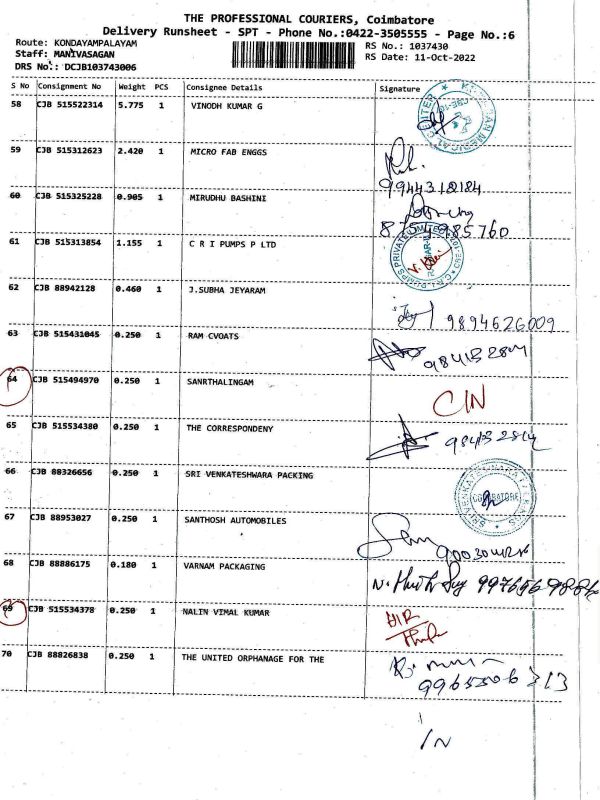 THE PROFESSIONAL COURIERS, Coimbatore
Delivery Runsheet - SPT - Phone No.:0422-3505555 - Page No.:6
Route: KONDAYAMPALAYAM
RS No.: 1037430
Staff: MANIVASAGAN
RS Date: 11-Oct-2022
DRS No.: DCJB103743006
S No Consignment No Weight PCS Consignee Details Signature
58 CJB 515522314 5.775 1 VINODH KUMAR G
59 CJB 515312623 2.420 1 MICRO FAB ENGGS
9944318184
60 CJB 515325228 0.905 1 MIRUDHU BASHINI
61 CJB 515313854 1.155 1 C R I PUMPS P LTD
62 CJB 88942128 0.460 1 J.SUBHA JEYARAM
9894626009
63 CJB 515431045 0.250 1 RAM CVOATS
64 CJB 515494970 0.250 1 SANRTHALINGAM
CIN
65 CJB 515534380 0.250 1 THE CORRESPONDENY
66 CJB 88326656 0.250 1 SRI VENKATESHWARA PACKING
COIMBATORE
67 CJB 88953027 0.250 1 SANTHOSH AUTOMOBILES
68 CJB 88886175 0.180 1 VARNAM PACKAGING
69 CJB 515534378 0.250 1 NALIN VIMAL KUMAR
70 CJB 88826838 0.250 1 THE UNITED ORPHANAGE FOR THE
9965506313
IN